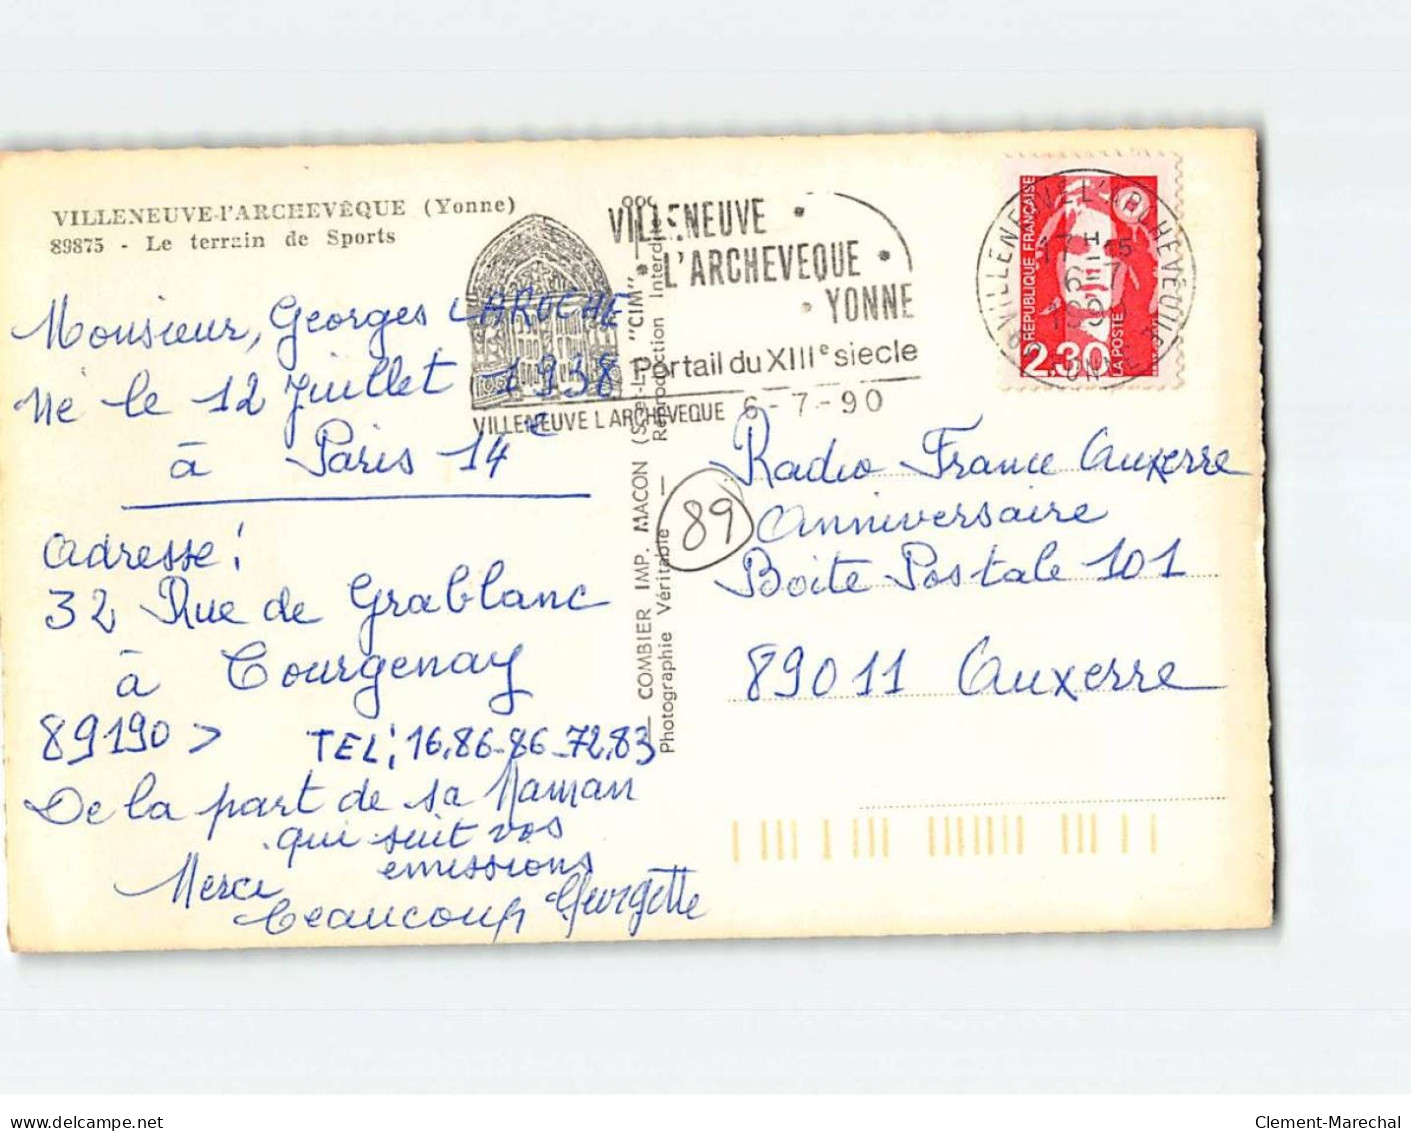 VILLENEUVE-l'ARCHEVÊQUE (Yonne)
89875 - Le terrain de Sports
Monsieur, Georges LAROCHE
Né le 12 Juillet 1938
à Paris 14e
adresse :
32 Rue de Grablanc
à Courgenay
89190 >
TEL : 16.86-86-72.83
De la part de sa Maman
qui suit vos
emissions
Merci
beaucoup Georgette
VILLENEUVE
L'ARCHEVEQUE
YONNE
Portail du XIIIe siecle
VILLENEUVE L ARCHEVEQUE 6-7-90
COMBIER IMP. MACON (S.-et-L.) "CIM"
Photographie Véritable — Reproduction Interdite
VILLENEUVE L'ARCHEVÊQUE
YONNE
17 H 15
6-7
REPUBLIQUE FRANÇAISE
2,30
LA POSTE
89
Radio France Auxerre
anniversaire
Boite Postale 101
89011 Auxerre
www.delcampe.net
Clement-Marechal